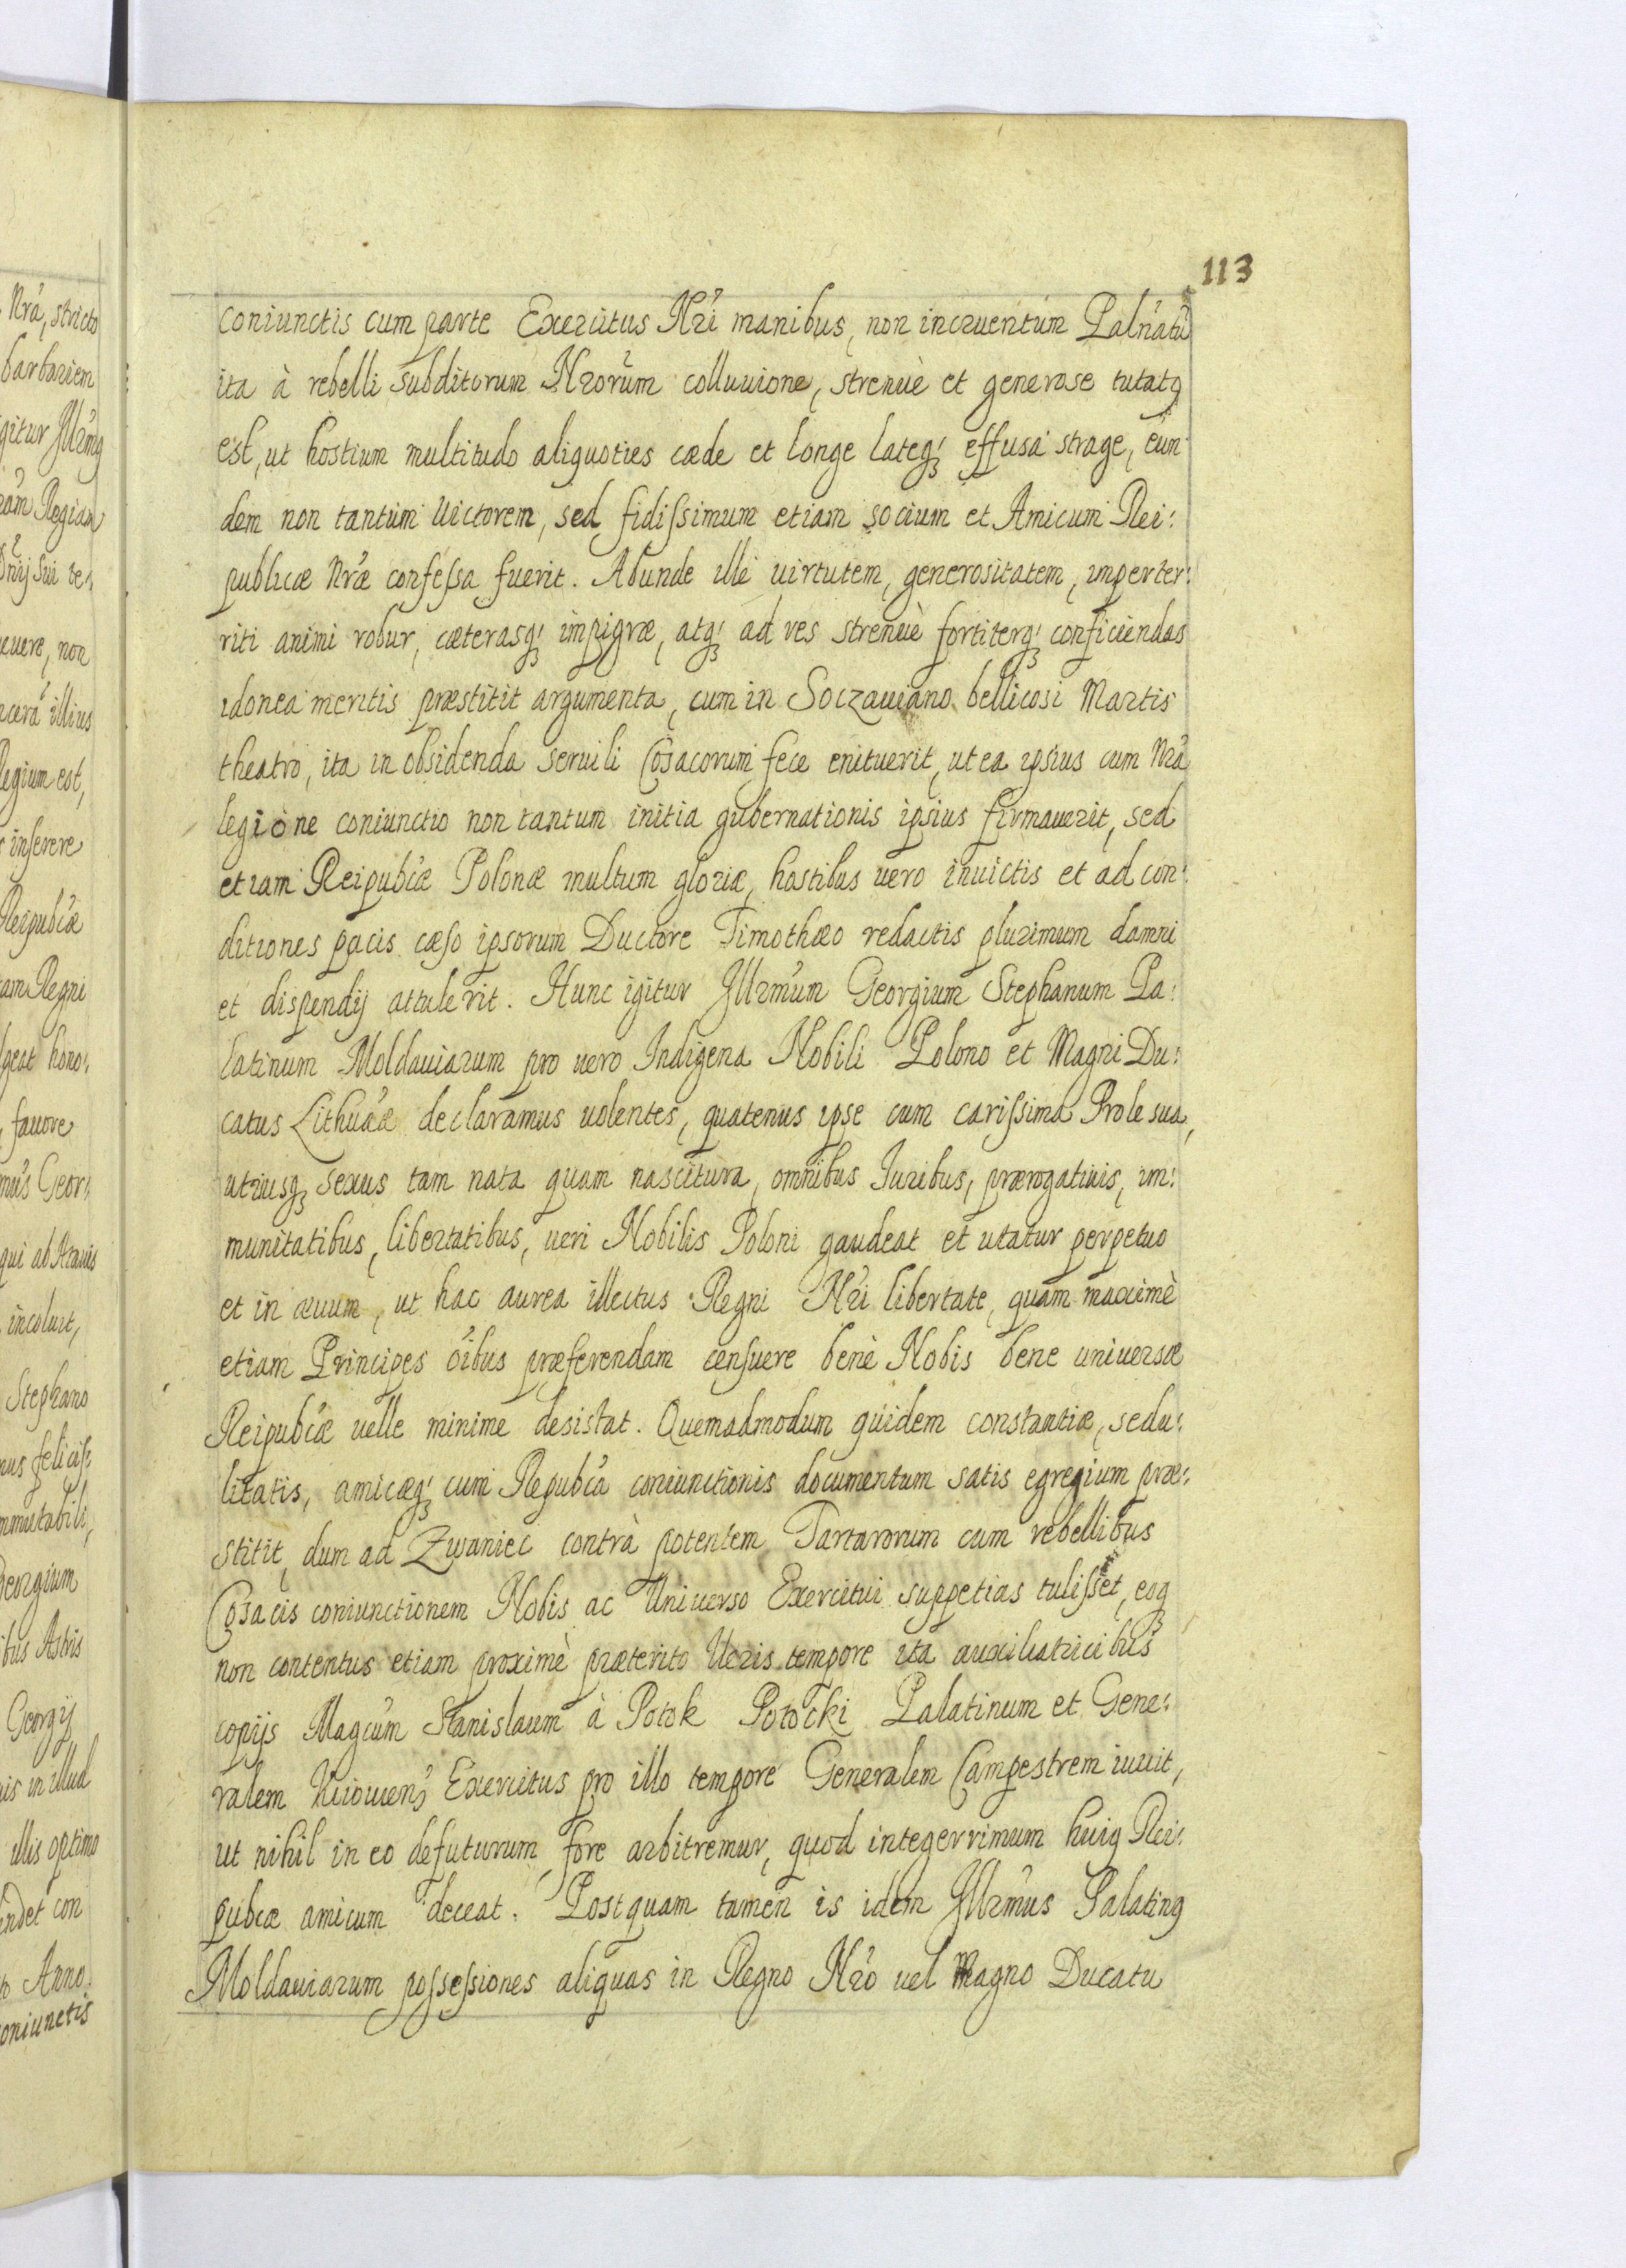 113
coniunctis cum parte Exercitus Nri manibus, non incruentum Palnatũ
ita à rebelli subditorum Nrorum colluuione, strenuè et generose tutatꝰ
est, ut hostium multitudo aliquoties cæde et longe lateqꝫ effusa strage, eun
dem non tantùm Victorem, sed fidissimum etiam socium et Amicum Rei:
publicæ Nræ confessa fuerit. Abunde ille uirtutem, generositatem, imperter:
riti animi robur, cæterasqꝫ impigræ, atqꝫ ad res strenuè fortiterqꝫ conficiendas
idonea mentis præstitit argumenta, cum in Soczauiano bellicosi Martis
theatro, ita in obsidenda seruili Cosacorum fece enituerit, ut ea ipsius cum Nra
legione coniunctio non tantum initia gubernationis ipsius firmauerit, sed
etiam Reipubcæ Polonæ multum gloriæ, hostibus uero inuictis et ad con:
ditiones pacis cæso ipsorum Ductore Timothæo redactis plurimum damni
et dispendij attulerit. Hunc igitur Illrmum Georgium Stephanum Pa:
latinum Moldauiarum pro uero Indigena Nobili Polono et Magni Du:
catus Lithuaæ declaramus uolentes, quatenus ipse cum carissima Prole sua,
utriusqꝫ sexus tam nata quam nascitura, omnibus Iuribus, prærogatiuis, im:
munitatibus, libertatibus, ueri Nobilis Poloni gaudeat et utatur perpetuo
et in æuum, ut hac aurea illectus Regni Nri libertate, quam maximè
etiam Principes oibus præferendam censuere benè Nobis bene uniuersæ
Reipubcæ uelle minime desistat. Quemadmodum quidem constantiæ, sedu:
litatis, amicæqꝫ cum Repubca coniunctionis documentum satis egregium præ:
stitit, dum ad Zwaniec contrà potentem Tartarorum cum rebellibus
Cosacis coniunctionem Nobis ac Uniuerso Exercitui suppetias tulisset, eoqꝫ
non contentus etiam proximè præterito Veris tempore ita auxiliatricibus
copijs Magcum Stanislaum à Potok Potocki Palatinum et Gene:
ralem Kiiouien̄ Exercitus pro illo tempore Generalem Campestrem iuuit,
ut nihil in eo defuturum fore arbitremur, quod integerrimum huiꝰ Rei:
pubcæ amicum deceat. Postquam tamen is idem Illrmus Palatinꝰ
Moldauiarum possessiones aliquas in Regno Nro uel Magno Ducatu